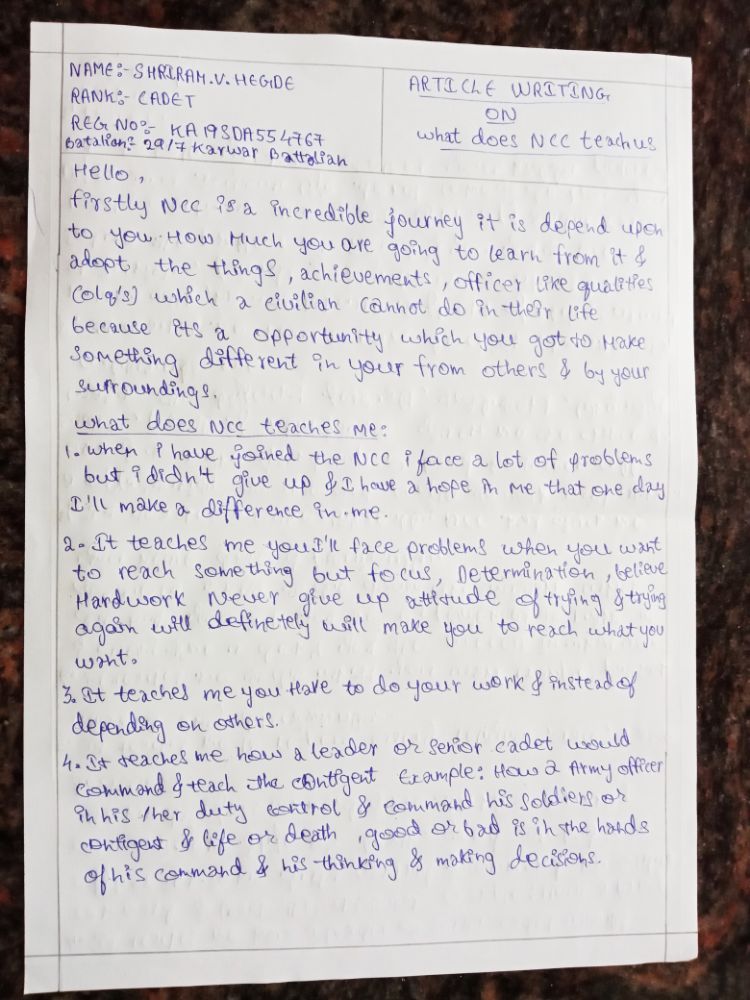 NAME:- SHRIRAM.V.HEGDE
RANK:- CADET
REG NO:- KA19SDA554767
Batalian:- 29/7 Karwar Battalian
ARTICLE WRITING
ON
what does NCC teach us
Hello,
firstly NCC is a incredible journey it is depend upon
to you. How Much you are going to learn from it &
adopt the things, achievements, officer like qualities
(olq's) which a civilian cannot do in their life
because its a opportunity which you got to Make
something different in your from others & by your
surroundings.
what does NCC teaches Me:
1. when i have joined the NCC i face a lot of problems
but i didn't give up & I have a hope in me that one day
I'll make a difference in me.
2. It teaches me you I'll face problems when you want
to reach something but focus, Determination, believe
Hardwork Never give up attitude of trying & trying
again will definetely will make you to reach what you
want.
3. It teaches me you Have to do your work & instead of
depending on others.
4. It teaches me how a leader or senior cadet would
command & teach the contigent Example: How a Army officer
in his/her duty control & command his soldiers or
contigent & life or death, good or bad is in the hands
of his command & his thinking & making decisions.